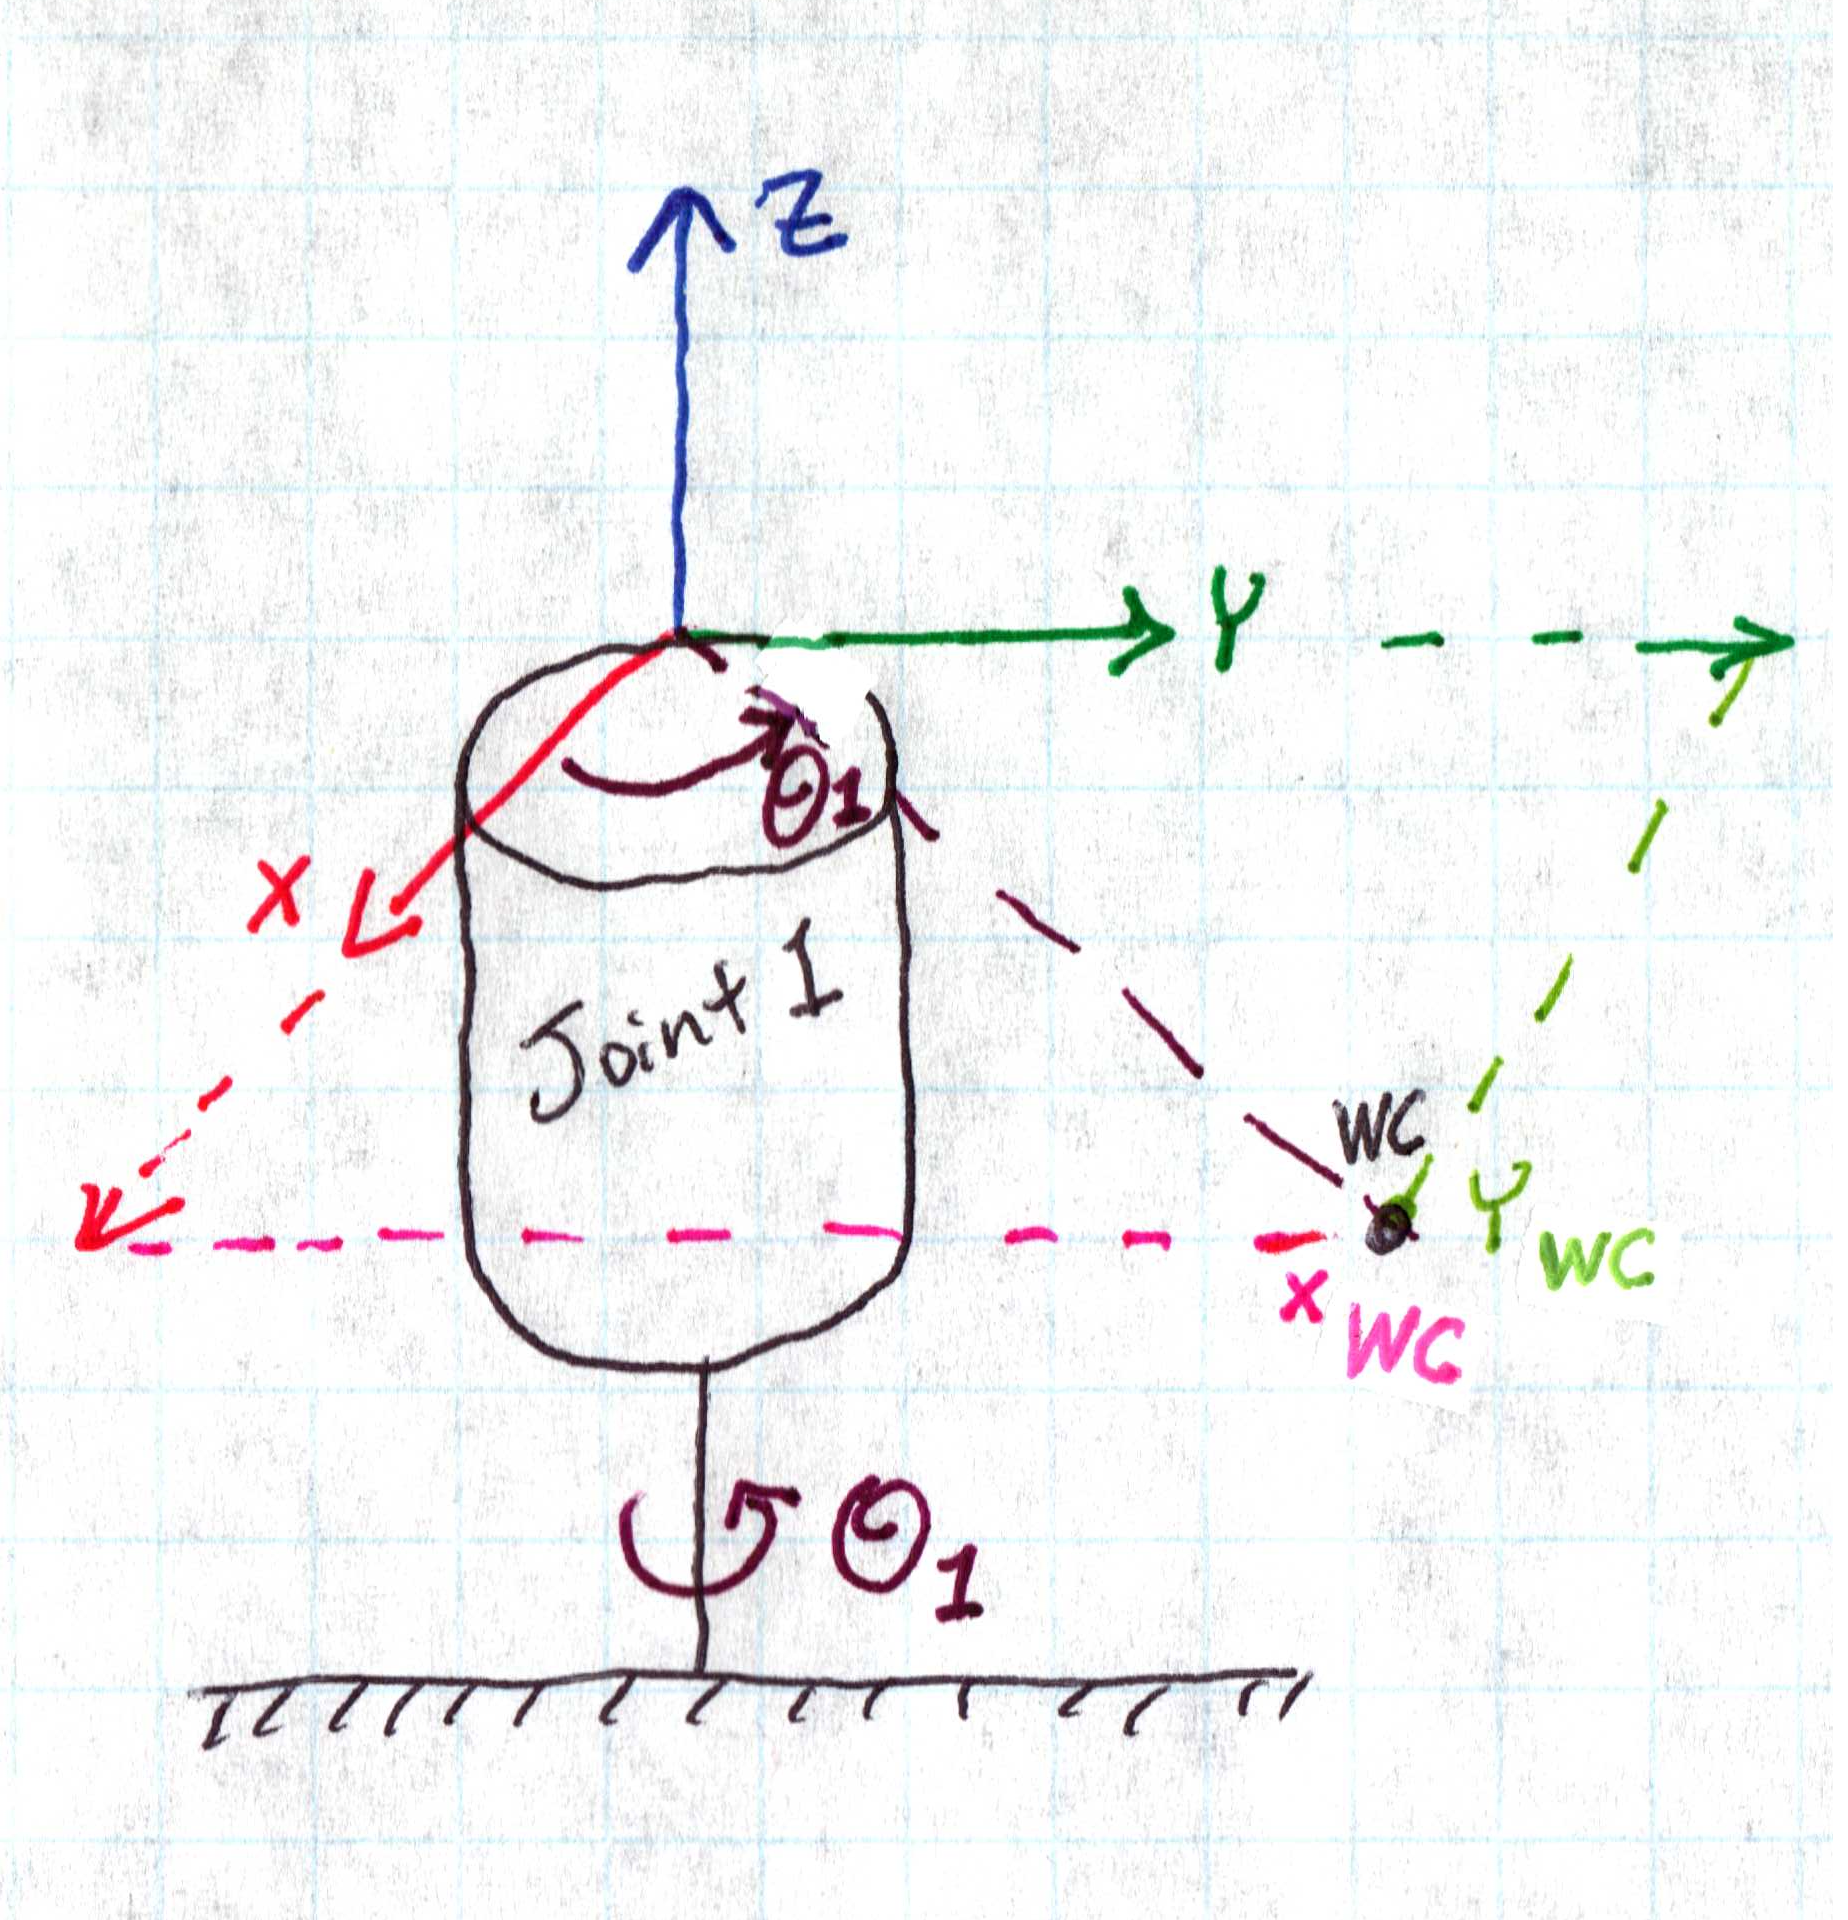 Z
Y
Θ1
X
Joint 1
WC
Y WC
X WC
Θ1